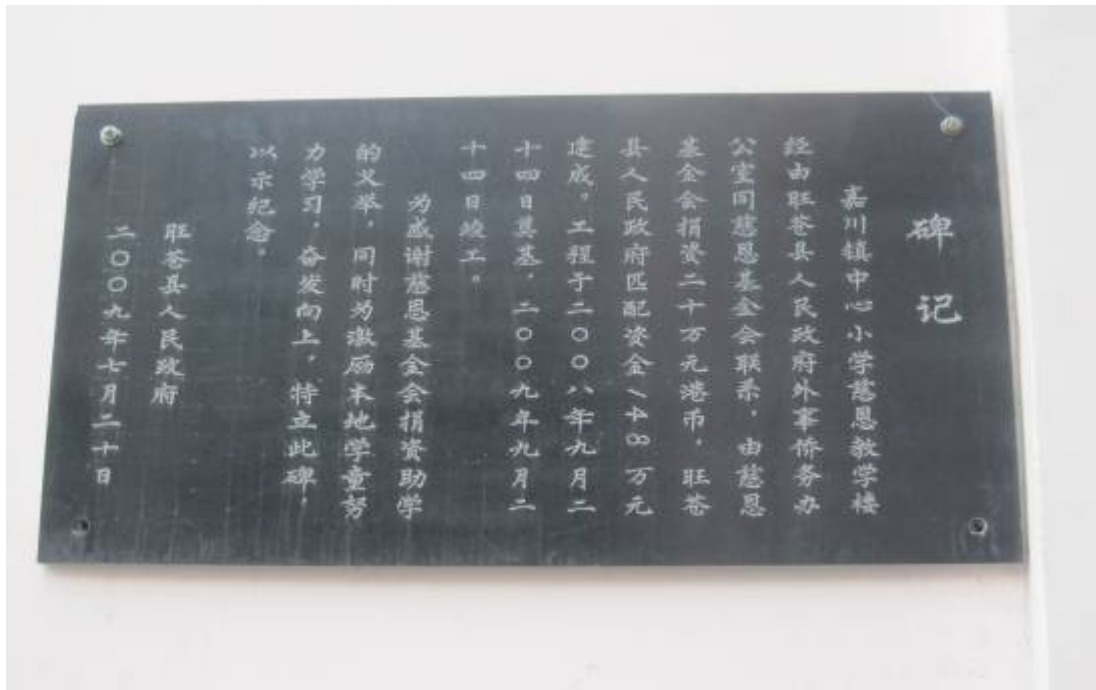 碑记
嘉川镇中心小学慈恩教学楼
经由旺苍县人民政府外事侨务办
公室同慈恩基金会联系，由慈恩
基金会捐资二十万元港币，旺苍
县人民政府匹配资金148万元
建成。工程于二〇〇八年九月二
十四日奠基，二〇〇九年九月二
十四日竣工。
为感谢慈恩基金会捐资助学
的义举，同时为激励本地学童努
力学习，奋发向上，特立此碑，
以示纪念。
旺苍县人民政府
二〇〇九年七月二十日